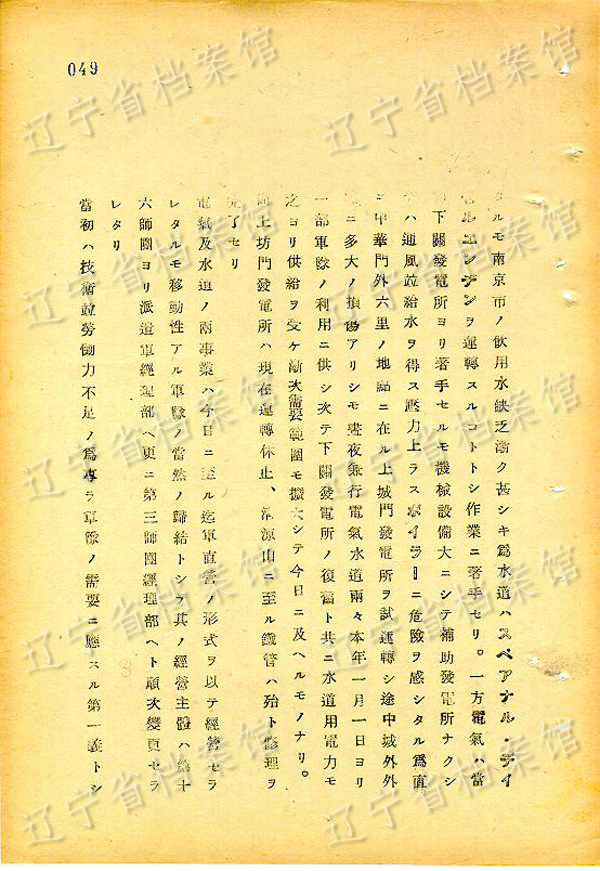 049
タルモ南京市ノ飲用水缺乏漸ク甚シキ爲水道ハスペアナル・デイ
ルエンヂンヲ運轉スルコトトシ作業ニ著手セリ。一方電氣ハ當
下關發電所ヨリ著手セルモ機械設備大ニシテ補助發電所ナクシ
ハ通風竝給水ヲ得ス壓力上ラスボイラーニ危險ヲ感シタル爲直
中華門外六里ノ地點ニ在ル上城門發電所ヲ試運轉シ途中城外外
ニ多大ノ損傷アリシモ晝夜兼行電氣水道兩々本年一月一日ヨリ
一部軍隊ノ利用ニ供シ次テ下關發電所ノ復舊ト共ニ水道用電力モ
之ヨリ供給ヲ受ケ漸次需要範圍モ擴大シテ今日ニ及ヘルモノナリ。
上坊門發電所ハ現在運轉休止、清涼山ニ至ル鐵管ハ殆ト修理ヲ
完了セリ
電氣及水道ノ兩事業ハ今日ニ至ル迄軍直營ノ形式ヲ以テ經營セラ
レタルモ移動性アル軍隊ノ當然ノ歸結トシテ其ノ經營主體ハ第十
六師團ヨリ派遣軍經理部ヘ更ニ第三師團經理部ヘト順次變更セラ
レタリ
當初ハ技術竝勞働力不足ノ爲專ラ軍隊ノ需要ニ應スル第一義トシ
辽宁省档案馆
辽宁省档案馆
辽宁省档案馆
辽宁省档案馆
辽宁省档案馆
辽宁省档案馆
辽宁省档案馆
辽宁省档案馆